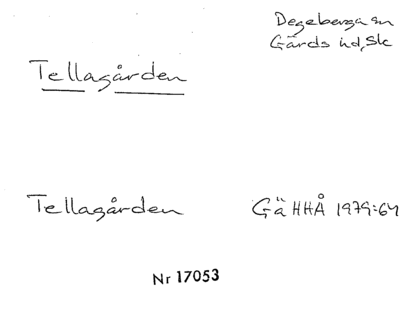 Degeberga sn
Gärds hd, Sk
Tellagården
Tellagården GäHHÅ 1979:64
Nr 17053